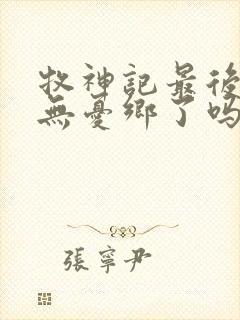 牧神記最後
無憂鄉了吗
張寧尹